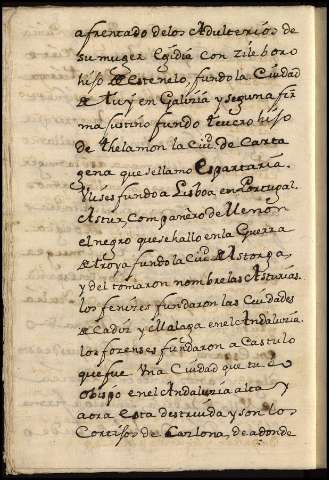 afrentado delos Adulterios de
su muger Egidia con Zileboro
hijo de Estenelo, fundo la Ciudad
de Tuy en Galizia y segun afir
ma Justino fundo teucro hijo
de thelamon la Ciud de Carta
gena que sellamo Espartaria.
Ulises fundo a Lisboa, en Portugal.
Astur, Companero de Memon
el negro quese hallo en la Guerra
de Troya fundo la Ciud de Astorga,
y del tomaron nombre las Asturias.
los fenizes fundaron las Ciudades
de Cadiz y Malaga en el Andaluzia.
los forenses fundaron a Castulo
que fue Una Ciudad que tubo
Obispo en el Andaluzia alta y
aora esta destruida y son los
Cortijos de Carlona, de adonde